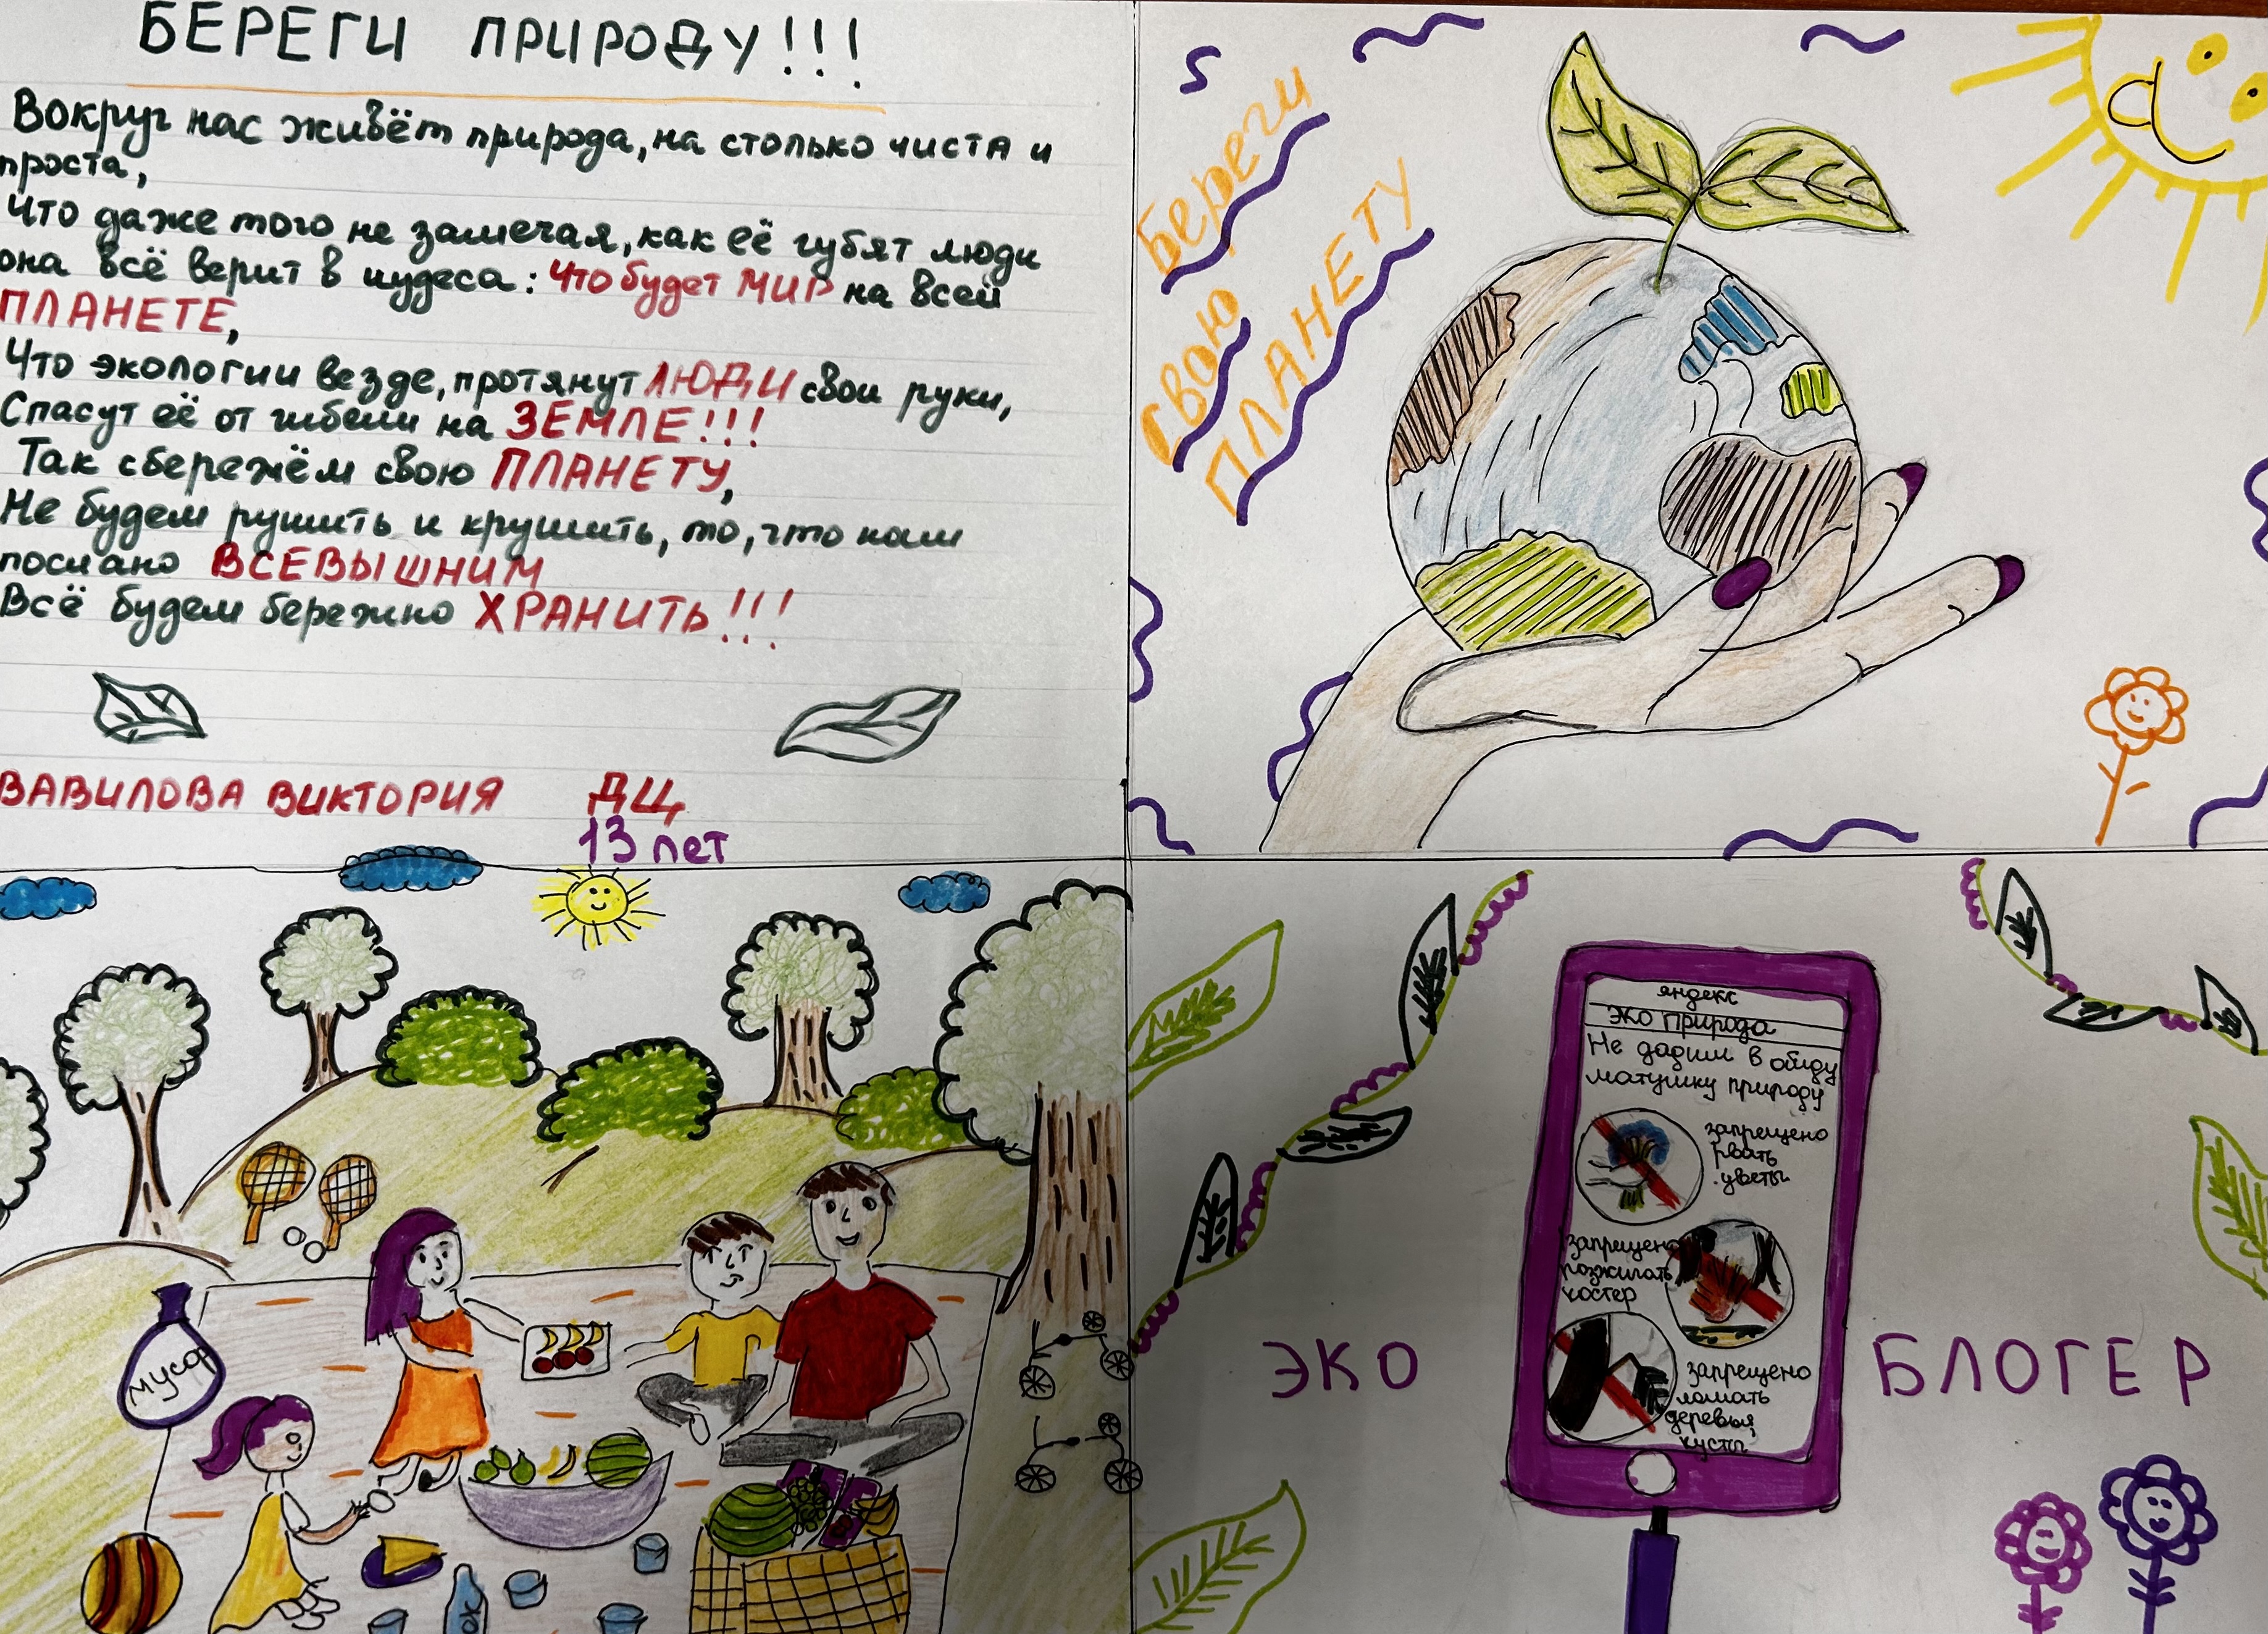 БЕРЕГИ ПРИРОДУ!!!
Вокруг нас живёт природа, на столько чиста и
проста,
Что даже того не замечая, как её губят люди
она всё верит в чудеса: Что будет МИР на всей
ПЛАНЕТЕ,
Что экологии везде, протянут ЛЮДИ свои руки,
Спасут её от гибели на ЗЕМЛЕ!!!
Так сбережём свою ПЛАНЕТУ,
Не будем рушить и крушить, то, что нам
послано ВСЕВЫШНИМ
Всё будем бережно ХРАНИТЬ!!!
ВАВИЛОВА ВИКТОРИЯ ДЦ
13 лет
Береги
СВОЮ
ПЛАНЕТУ
мусор
яндекс
эко природа
Не дадим в обиду
матушку природу
запрещено
рвать
цветы
запрещено
розжигать
костер
запрещено
ломать
деревья,
кусты
ЭКО БЛОГЕР